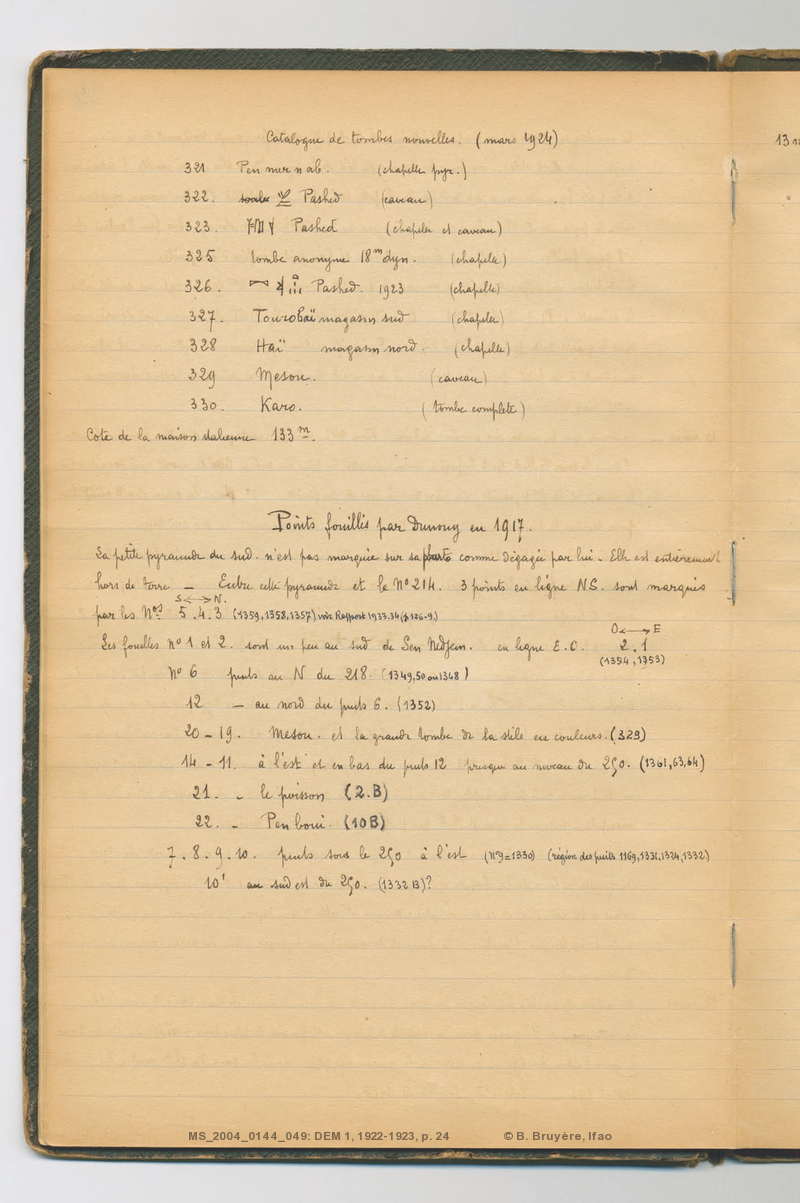 Catalogue de tombes nouvelles. (mars 1924)
13
321 Pen mer n ab. (chapelle pyr.)
322. Pashed (caveau)
323. Pashed (chapelle et caveau)
325 tombe anonyme 18m dyn. (chapelle)
326. Pashed. 1923 (chapelle)
327. Tourobaï magasin sud (chapelle)
328 Haï magasin nord. (chapelle)
329 Mesou. (caveau)
330. Karo. (tombe complète)
Cote de la maison italienne 133m.
Points fouillés par Dunouy en 1917.
La petite pyramide du sud. n'est pas marquée sur sa comme dégagée par lui. Elle est entièrement
hors de terre — Entre cette pyramide et le No 214. 3 points en ligne NS. sont marqués
S ←→ N.
par les Nos 5.4.3 (1359, 1358, 1357) voir Rapport 1933.34 (p 126-9.)
O ←→ E
Les fouilles no 1 et 2. sont un peu au sud de Sen Nedjem. en ligne E.O. 2.1
(1354, 1353)
No 6 puits au N du 218. (1349, 50 ou 1348)
12 — au nord du puits 6. (1352)
20 - 19. Mesou. et la grande tombe de la stèle en couleurs. (329)
14 - 11. à l'est et en bas du puits 12 presque au niveau du 290. (1361, 63, 64)
21. - le poisson (2.B)
22. - Pen boui. (10B)
7. 8. 9. 10. puits sous le 290 à l'est (no 9 = 1330) (région des puits 1169, 1331, 1324, 1332)
10' au sud est du 290. (1332 B)?
MS_2004_0144_049: DEM 1, 1922-1923, p. 24 © B. Bruyère, Ifao